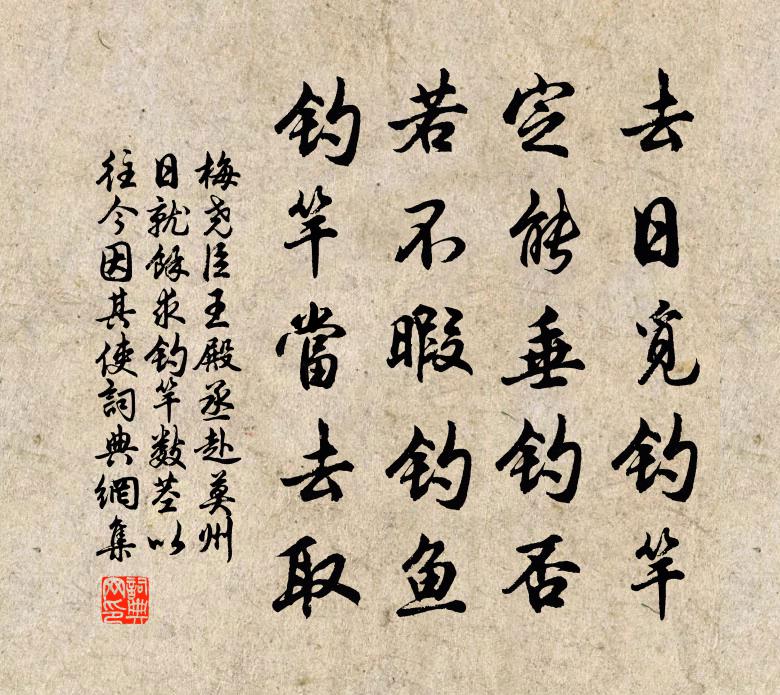 去日覓钓竿
定能垂钓否
若不暇钓鱼
钓竿當去取
梅尧臣王殿丞赴莫州
日就餘求钓竿数茎以
往今因其使詞典網集
詞典
网印